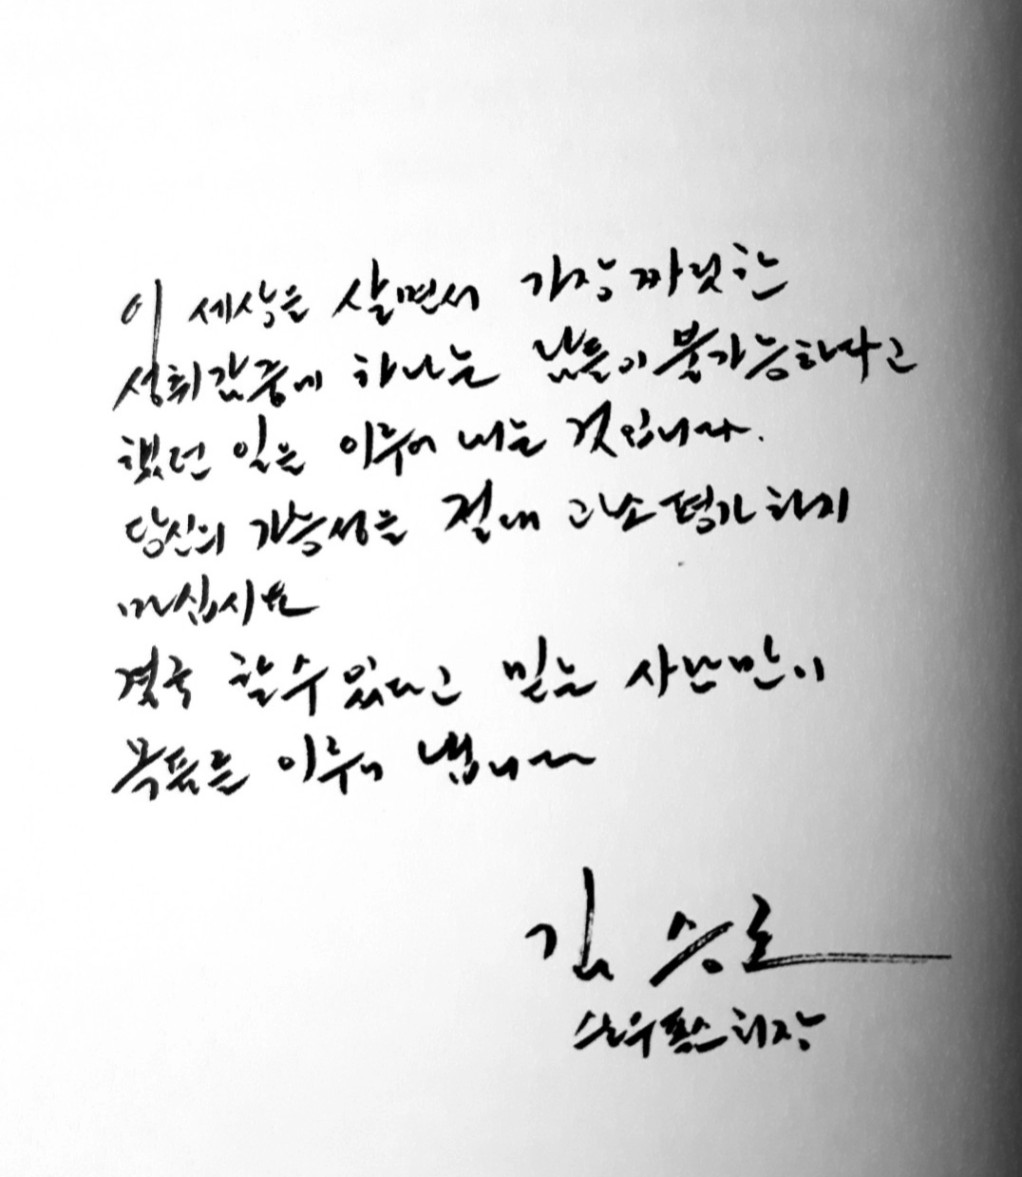 이 세상을 살면서 가장 짜릿한
성취감중에 하나는 남들이 불가능하다고
했던 일을 이루어 내는 것입니다.
당신의 가능성을 절대 과소평가하지
마십시요
결국 할수있다고 믿는 사람만이
목표를 이루어 냅니다
김승호
스노우폭스회장